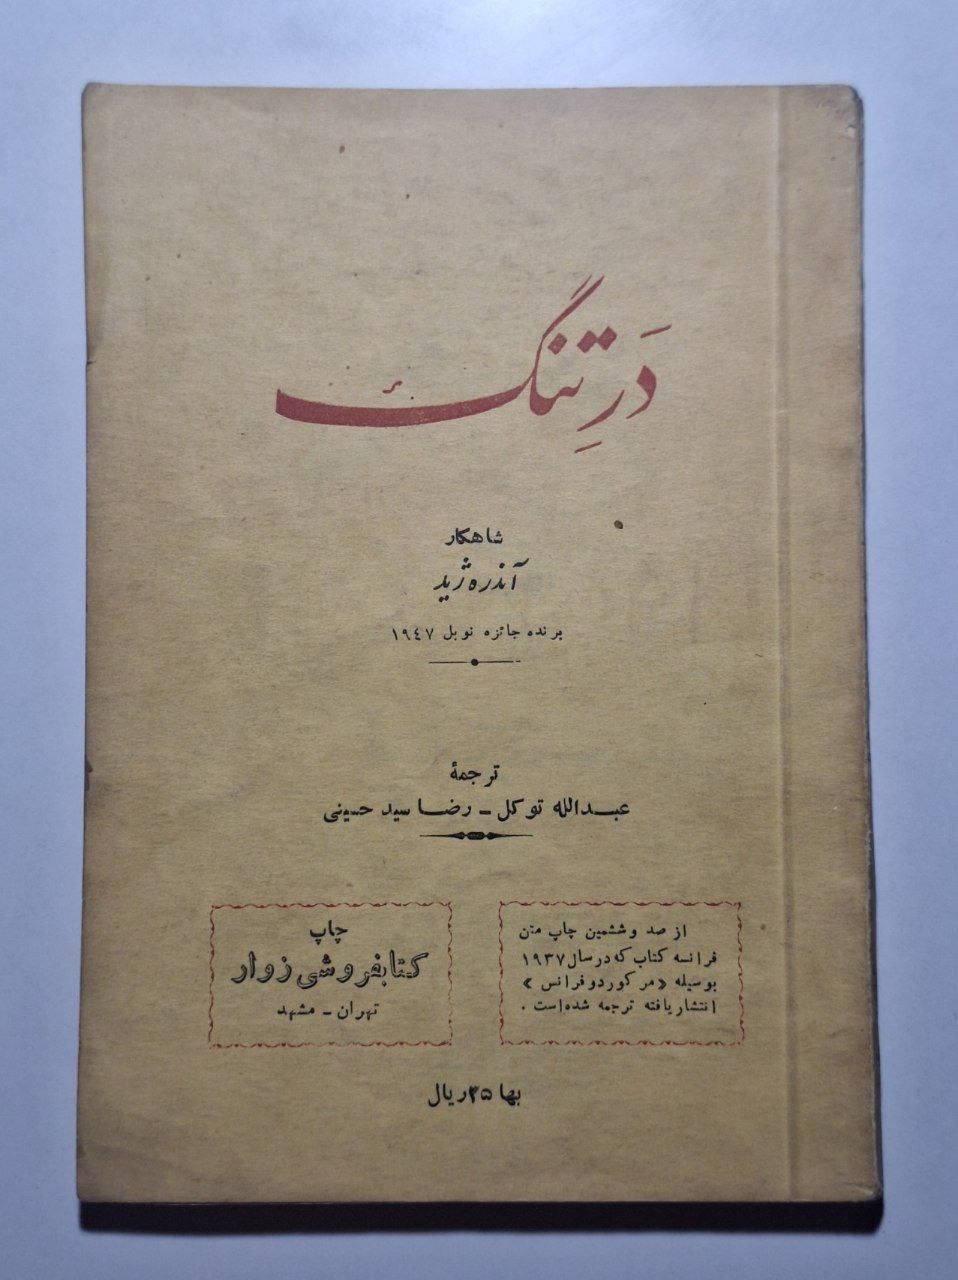 دَرِ تنگ
شاهکار
آندره ژید
برنده جائزه نوبل ۱۹٤۷
ترجمهٔ
عبدالله توکل ـ رضا سید حسینی
از صد و ششمین چاپ متن
فرانسه کتاب که در سال ۱۹۳۷
بوسیله «مرکور دو فرانس»
انتشار یافته ترجمه شده است .
چاپ
کتابفروشی زوار
تهران ـ مشهد
بها ریال